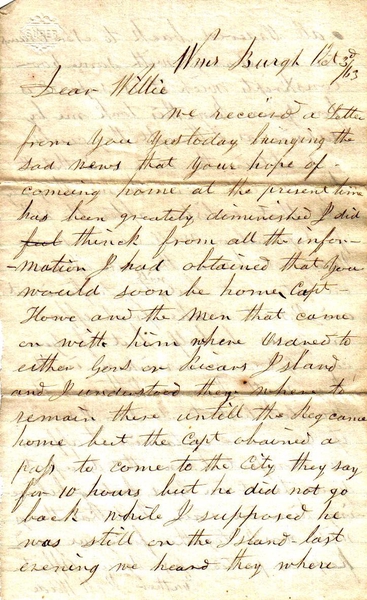 Wms Burgh Oct 3d /63
Dear Willie
We received a Letter
from you yestoday bringing the
sad news that your hope of
comeing home at the present time
has been greately diminished I did
feel thinck from all the infor-
-mation I had obtained that you
would soon be home Capt
Howe and the Men that came
on with him where to
either Govs or Ricars Island
and I understood they where to
remain there untill the Reg came
home but the Capt obained a
pass to come to the City they say
for 10 hours but he did not go
back while I supposed he
was still on the Island last
evening we heard they where